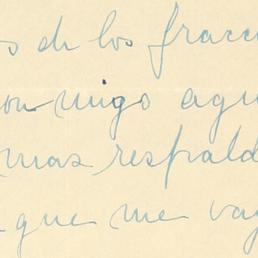 s de los fracc
onmigo aqu
mas respald
que me vay